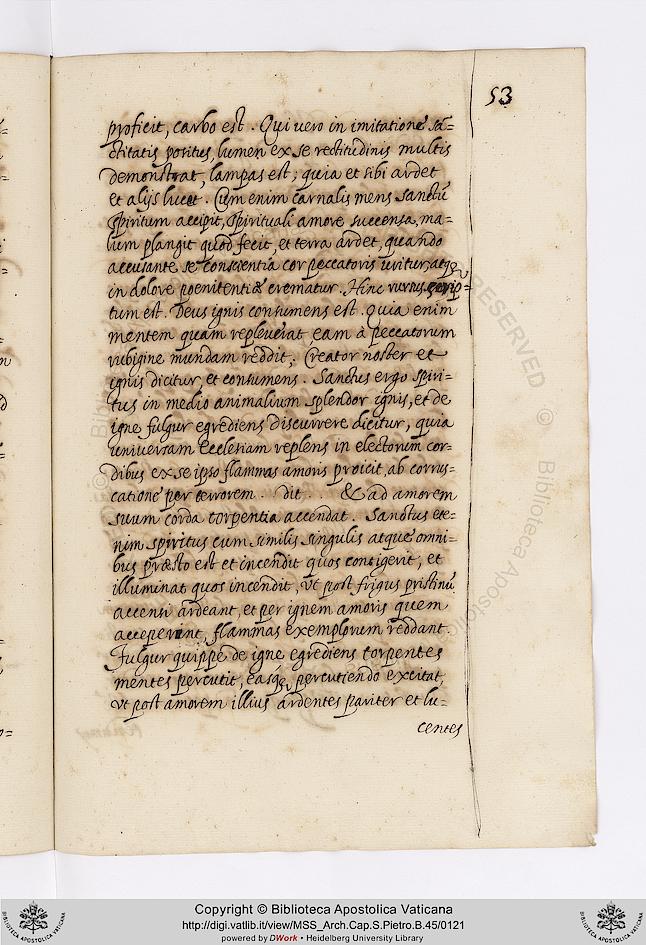 53
proficit, carbo est. Qui vero in imitatione sā=
ctitatis positus, lumen ex se rectitudinis multis
demonstrat, lampas est; quia et sibi ardet
et alijs lucet. Cum enim carnalis mens sanctū
spiritum accipit, spirituali amore succensa, ma=
lum plangit quod fecit, et terra ardet, quando
accusante se conscientia cor peccatoris uritur, atq;
in dolore poenitentiæ crematur. Hinc rursus scrip=
tum est. Deus ignis consumens est. Quia enim
mentem quam repleuerat eam à peccatorum
rubigine mundam reddit; Creator noster et
ignis dicitur, et consumens. Sanctus ergo spiri=
tus in medio animalium splendor ignis, et de
igne fulgur egrediens discurrere dicitur, quia
universam Ecclesiam replens in electorum cor=
dibus ex se ipso flammas amoris proicit, ab corrus=
catione per terrorem . dit . . & ad amorem
suum corda torpentia accendat. Sanctus ete=
nim spiritus cum similis singulis atque omni=
bus præsto est et incendit quos contigerit, et
illuminat quos incendit, vt post frigus pristinū
accensi ardeant, et per ignem amoris quem
acceperunt, flammas exemplorum reddant.
Fulgur quippe de igne egrediens torpentes
mentes percutit, easq; percutiendo excitat,
vt post amorem illius ardentes pariter et lu=
centes
Copyright © Biblioteca Apostolica Vaticana
http://digi.vatlib.it/view/MSS_Arch.Cap.S.Pietro.B.45/0121
powered by DWork • Heidelberg University Library